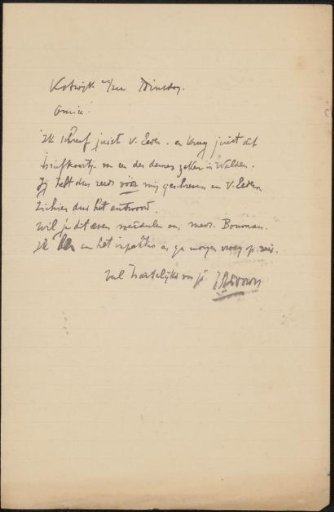 Katwijk a/Zee Dinsdag.
Amice!
Ik schreef juist v. Eeden en kreeg juist dit
briefkaartje en de dames zitten in Walden.
Jij hebt dus reeds voor mij geschreven en v. Eeden
Zichier dus het antwoord.
Wil je dit even meedeelen en mevr. Bouman.
Ik en het en ga morgen vroeg op reis.
Veel hartelijks van je